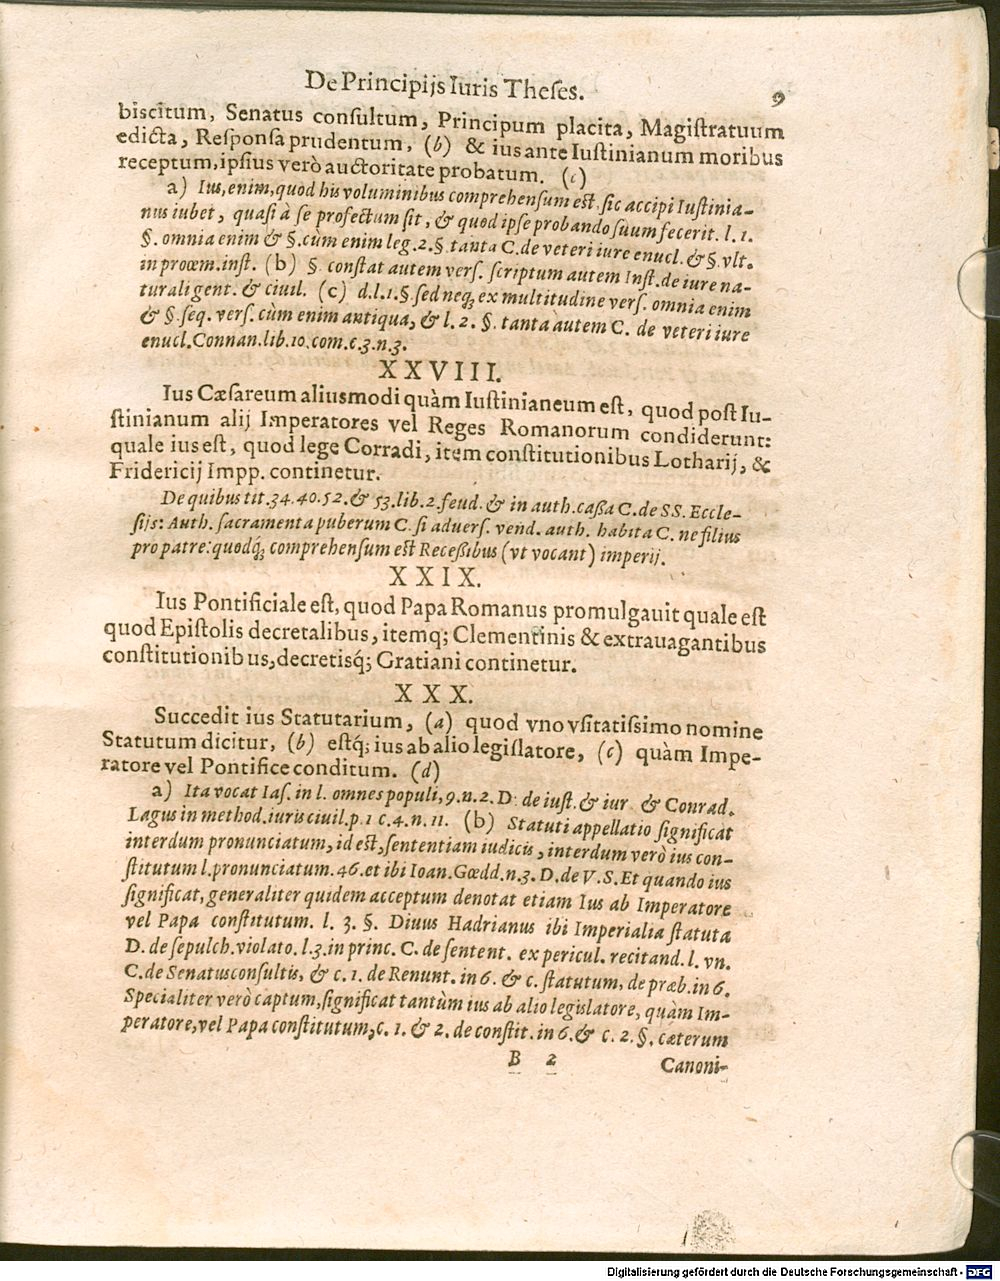 De Principijs Iuris Theses. 9
biscitum, Senatus consultum, Principum placita, Magistratuum
edicta, Responsa prudentum, (b) & ius ante Iustinianum moribus
receptum, ipsius verò auctoritate probatum. (c)
a) Ius, enim, quod his voluminibus comprehensum est, sic accipi Iustinia-
nus iubet, quasi à se profectum sit, & quod ipse probando suum fecerit. l. 1.
§. omnia enim & §. cùm enim leg. 2. §. tanta C. de veteri iure enucl. & §. vlt.
in proœm. inst. (b) §. constat autem vers. scriptum autem Inst. de iure na-
turali gent. & ciuil. (c) d. l. 1. §. sed neq; ex multitudine vers. omnia enim
& §. seq. vers. cùm enim antiqua, & l. 2. §. tanta autem C. de veteri iure
enucl. Connan. lib. 10. com. c. 3. n. 3.
XXVIII.
Ius Cæsareum aliusmodi quàm Iustinianeum est, quod post Iu-
stinianum alij Imperatores vel Reges Romanorum condiderunt:
quale ius est, quod lege Corradi, item constitutionibus Lotharij, &
Fridericij Impp. continetur.
De quibus tit. 34. 40. 52. & 53. lib. 2. feud. & in auth. caßa C. de SS. Eccle-
sijs: Auth. sacramenta puberum C. si aduers. vend. auth. habita C. ne filius
pro patre: quodq́; comprehensum est Receßibus (vt vocant) imperij.
XXIX.
Ius Pontificiale est, quod Papa Romanus promulgauit quale est
quod Epistolis decretalibus, itemq; Clementinis & extrauagantibus
constitutionibus, decretisq́; Gratiani continetur.
XXX.
Succedit ius Statutarium, (a) quod vno vsitatissimo nomine
Statutum dicitur, (b) estq́; ius ab alio legislatore, (c) quàm Impe-
ratore vel Pontifice conditum. (d)
a) Ita vocat Ias. in l. omnes populi, 9. n. 2. D. de iust. & iur. & Conrad.
Lagus in method. iuris ciuil. p. 1 c. 4. n. 11. (b) Statuti appellatio significat
interdum pronunciatum, id est, sententiam iudicis, interdum verò ius con-
stitutum l. pronunciatum. 46. et ibi Ioan. Gœdd. n. 3. D. de V. S. Et quando ius
significat, generaliter quidem acceptum denotat etiam Ius ab Imperatore
vel Papa constitutum. l. 3. §. Diuus Hadrianus ibi Imperialia statuta
D. de sepulch. violato. l. 3. in princ. C. de sentent. ex pericul. recitand. l. vn.
C. de Senatusconsultis, & c. 1. de Renunt. in 6. & c. statutum, de præb. in 6.
Specialiter verò captum, significat tantùm ius ab alio legislatore, quàm Im-
peratore, vel Papa constitutum, c. 1. & 2. de constit. in 6. & c. 2. §. cæterum
B 2 Canoni-
Digitalisierung gefördert durch die Deutsche Forschungsgemeinschaft - DFG